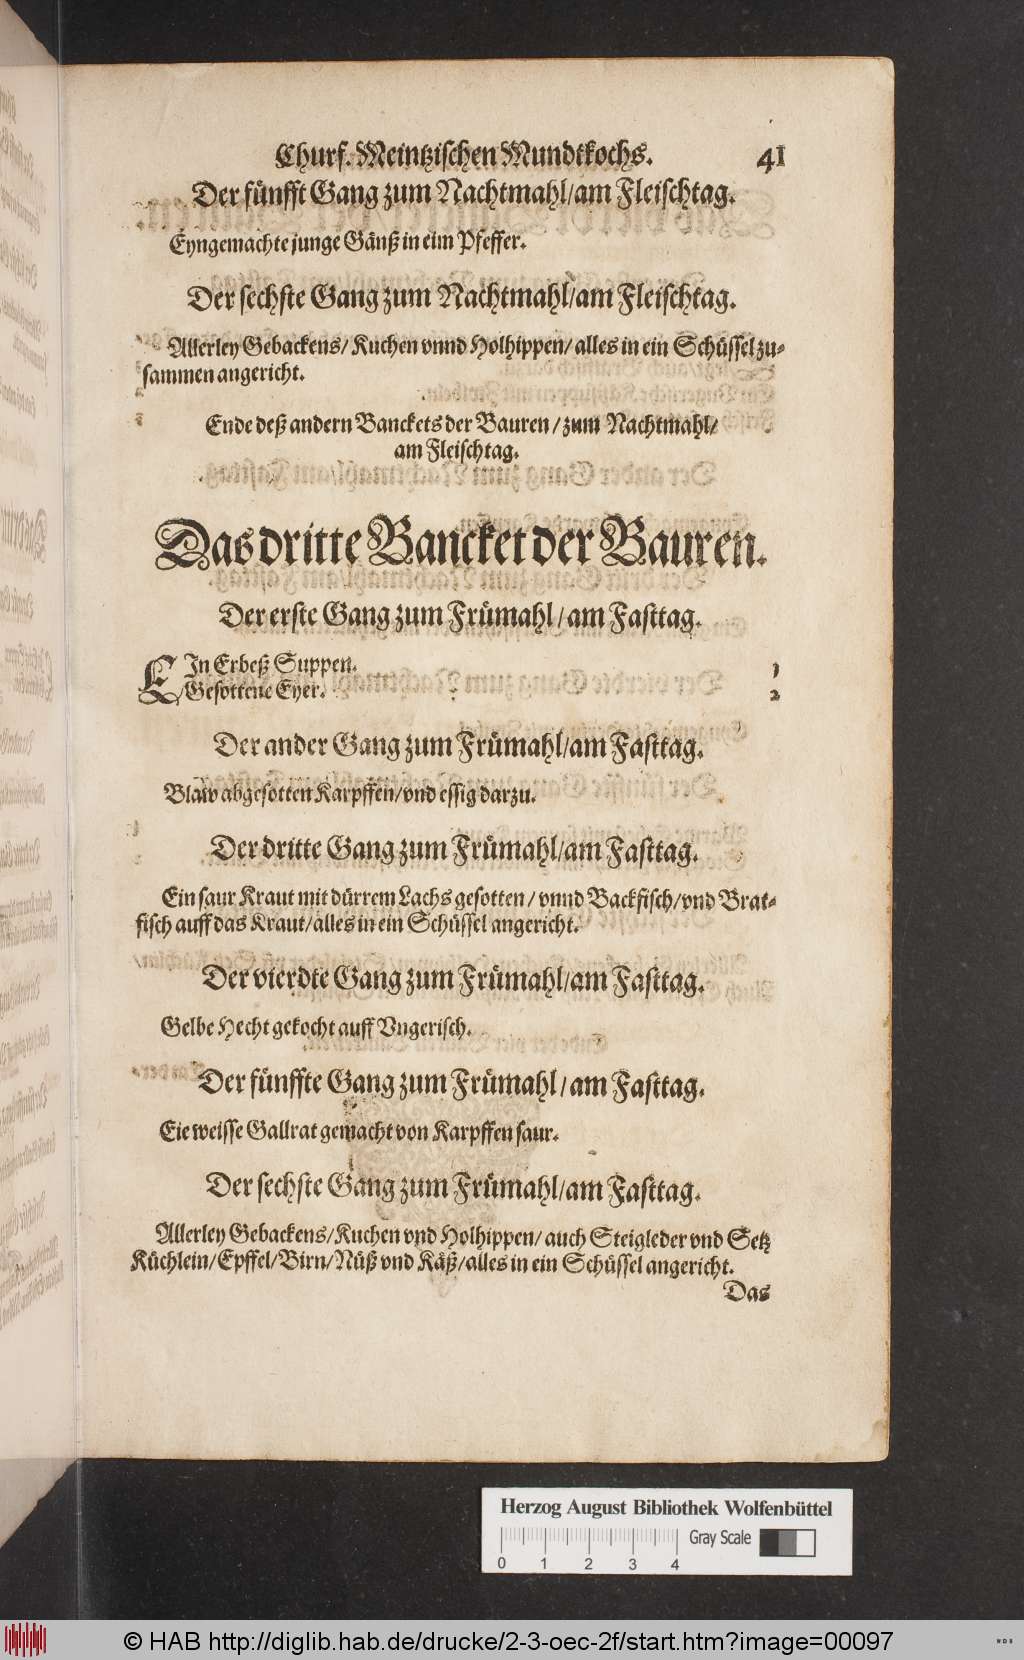 Churf. Meintzischen Mundtkochs. 41
Der fünfft Gang zum Nachtmahl/am Fleischtag.
Eyngemachte junge Gänß in eim Pfeffer.
Der sechste Gang zum Nachtmahl/am Fleischtag.
Allerley Gebackens/ Kuchen vnnd Holhippen/ alles in ein Schüssel zu-
sammen angericht.
Ende deß andern Banckets der Bauren / zum Nachtmahl/
am Fleischtag.
Das dritte Bancket der Bauren.
Der erste Gang zum Frümahl / am Fasttag.
EIn Erbeß Suppen. 1
Gesottene Eyer. 2
Der ander Gang zum Frümahl/am Fasttag.
Blaw abgesotten Karpffen/vnd essig darzu.
Der dritte Gang zum Frümahl/am Fasttag.
Ein saur Kraut mit dürrem Lachs gesotten / vnnd Backfisch/vnd Brat-
fisch auff das Kraut/alles in ein Schüssel angericht.
Der vierdte Gang zum Frümahl/am Fasttag.
Gelbe Hecht gekocht auff Vngerisch.
Der fünffte Gang zum Frümahl / am Fasttag.
Eie weisse Gallrat gemacht von Karpffen saur.
Der sechste Gang zum Frümahl/am Fasttag.
Allerley Gebackens/Kuchen vnd Holhippen/ auch Steigleder vnd Setz
Küchlein/Epffel/Birn/Nüß vnd Käß/alles in ein Schüssel angericht.
Das
Herzog August Bibliothek Wolfenbüttel
Gray Scale
0 1 2 3 4
© HAB http://diglib.hab.de/drucke/2-3-oec-2f/start.htm?image=00097